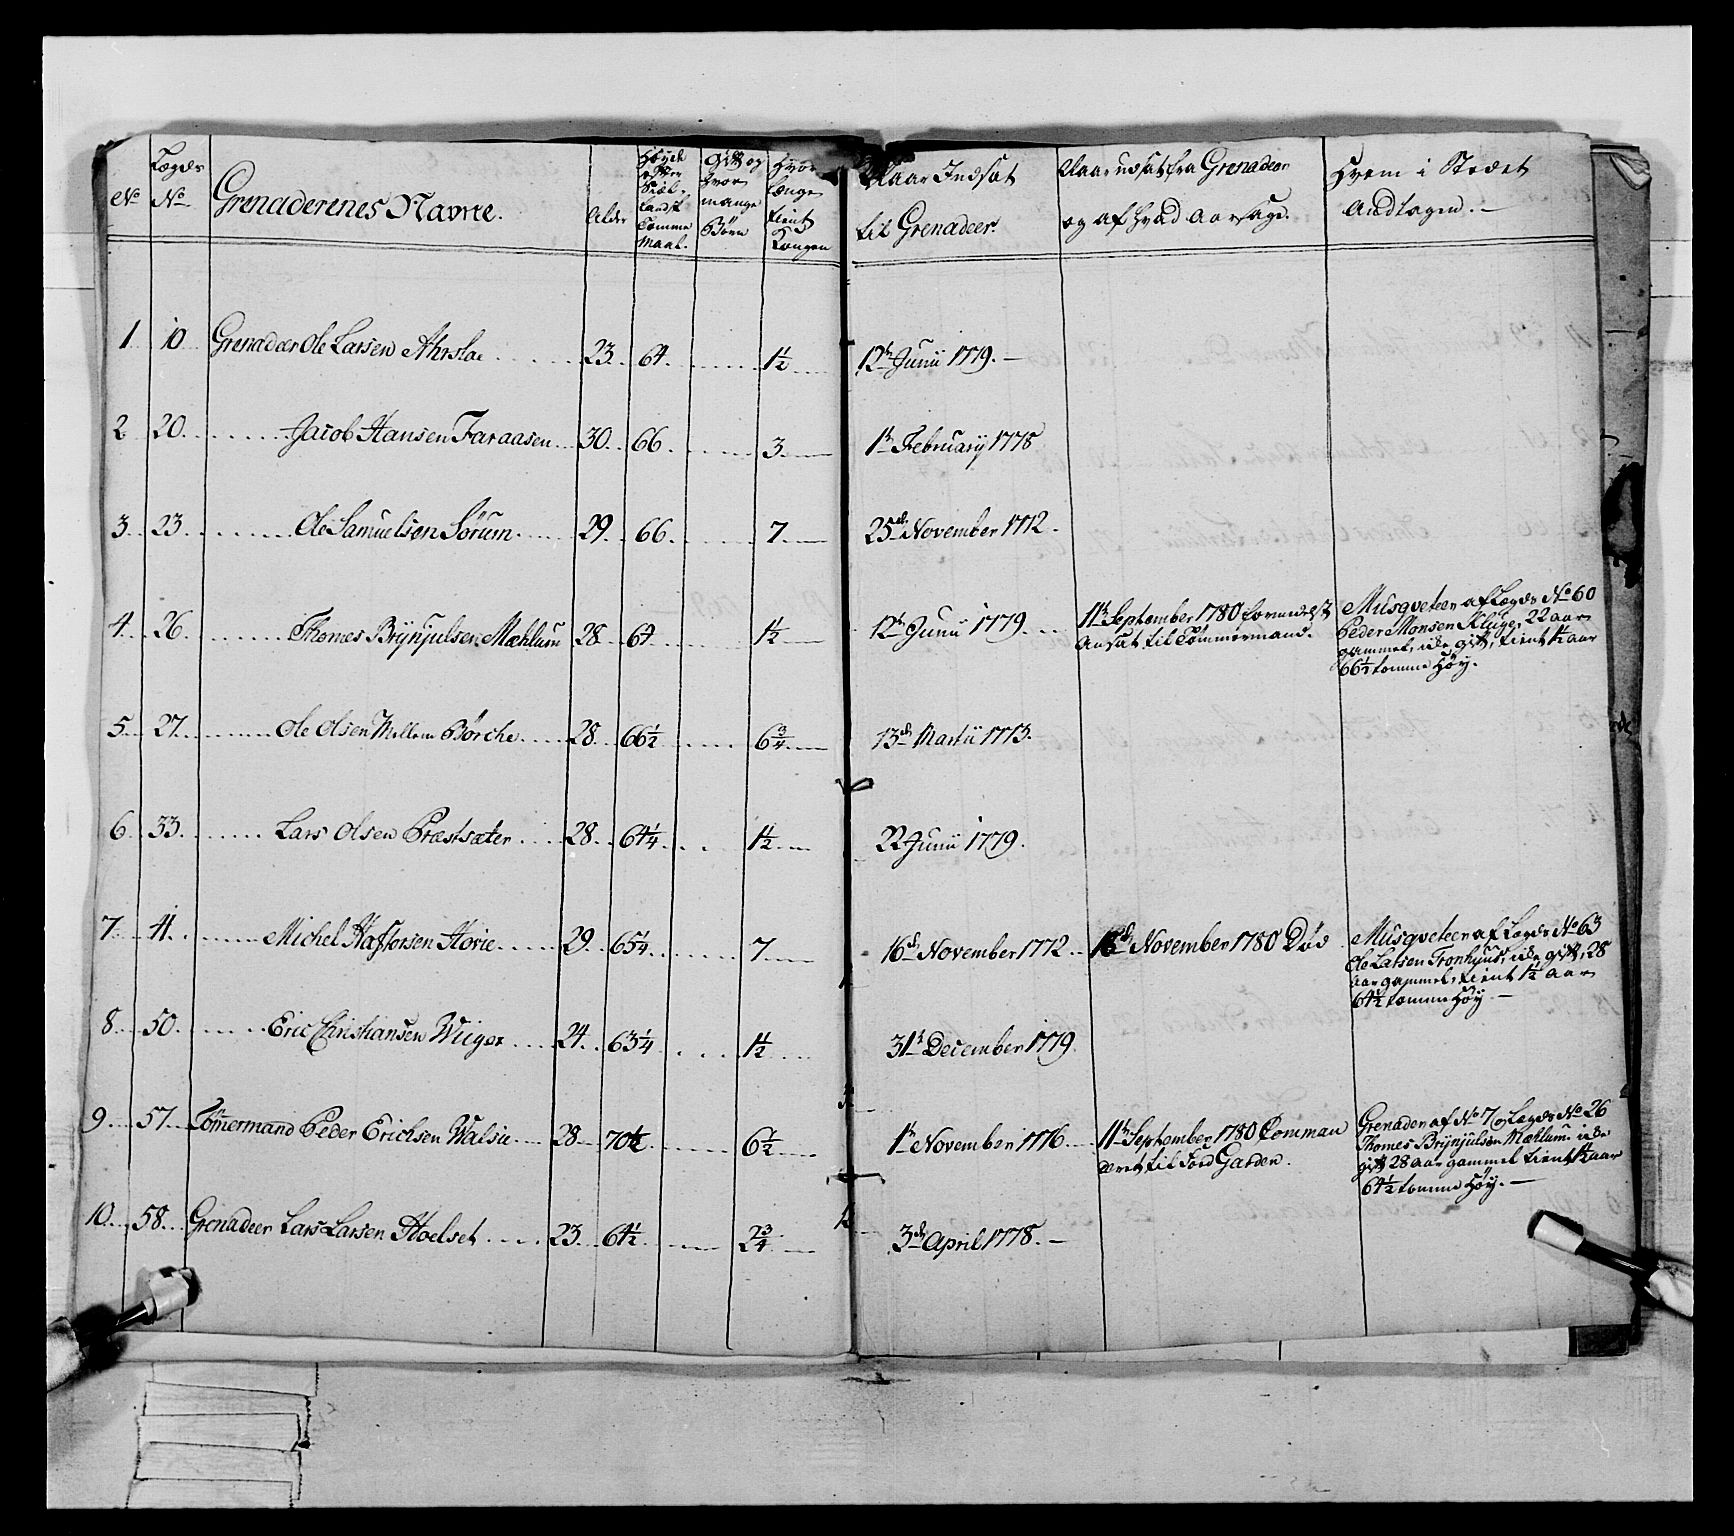 No
Lægds No
Grenaderenes Navne.
Alder
Høyde efter Siæl. Landsk Tomme Maal.
Gift og hvor mange Børn
Hvor længe tient Kongen
Naar Indsat til Grenadeer.
Naar udsat fra Grenadeer og af hvad Aarsage.
Hvem i Stedet Andtagen. —
1 10 Grenadeer Ole Larsen Ahrslae 23. 64. 1½ 12te Junii 1779. —
2 20. Jacob Hansen Faraasen 30. 66 3. 1te February 1778
3 23. Ole Samuelsen Sörum. 29. 66. 7. 25de November 1772.
4 26. Thomes Brÿnjulsen Mæhlum 28 64 1½ 12te Junii 1779. 11te September 1780 formedelst
Ansat til Tömmermand.
Musqveteer af Lægds No 60
Peder Monsen Kluge, 22 aar
gammel, icke gift, tient 1½ aar
66½ tomme Høy.
5 27. Ole Olsen Mellem Børche 28 66½ 6¾ 13de Martii 1773.
6 33. Lars Olsen Præstsæter 28. 64¼ 1½ 22 Junii 1779.
7. 41. Michel Haftorsen Horie 29. 65¼ 7 16de November 1772. 18de November 1780 Död
Musqveteer af Lægds No 63
Ole Larsen Tronhuus, icke gift, 28
aar gammel, tient 1½ aar
64½ tomme Høy. —
8 50. Eric Christiansen Wiiger 24. 63¼ 1½ 31te December 1779.
9 57. Tömermand Peder Erichsen Walsie 28 70½ 6½ 1te November 1776. 11te September 1780 Comman
deret til Garden.
Grenadeer af No 7 Lægds No 26
Thomes Brÿnjulsen Mæhlum. icke
gift 28 aar gammel tient 1½ aar
64½ tomme Høy. —
10. 58. Grenadeer Lars Larsen Hoelset 23. 64½ 2¾ 3de April 1778. —